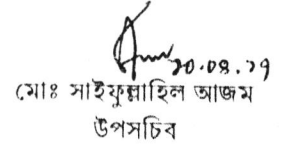 ২০.০৪.১৭
মোঃ সাইফুল্লাহিল আজম
উপসচিব